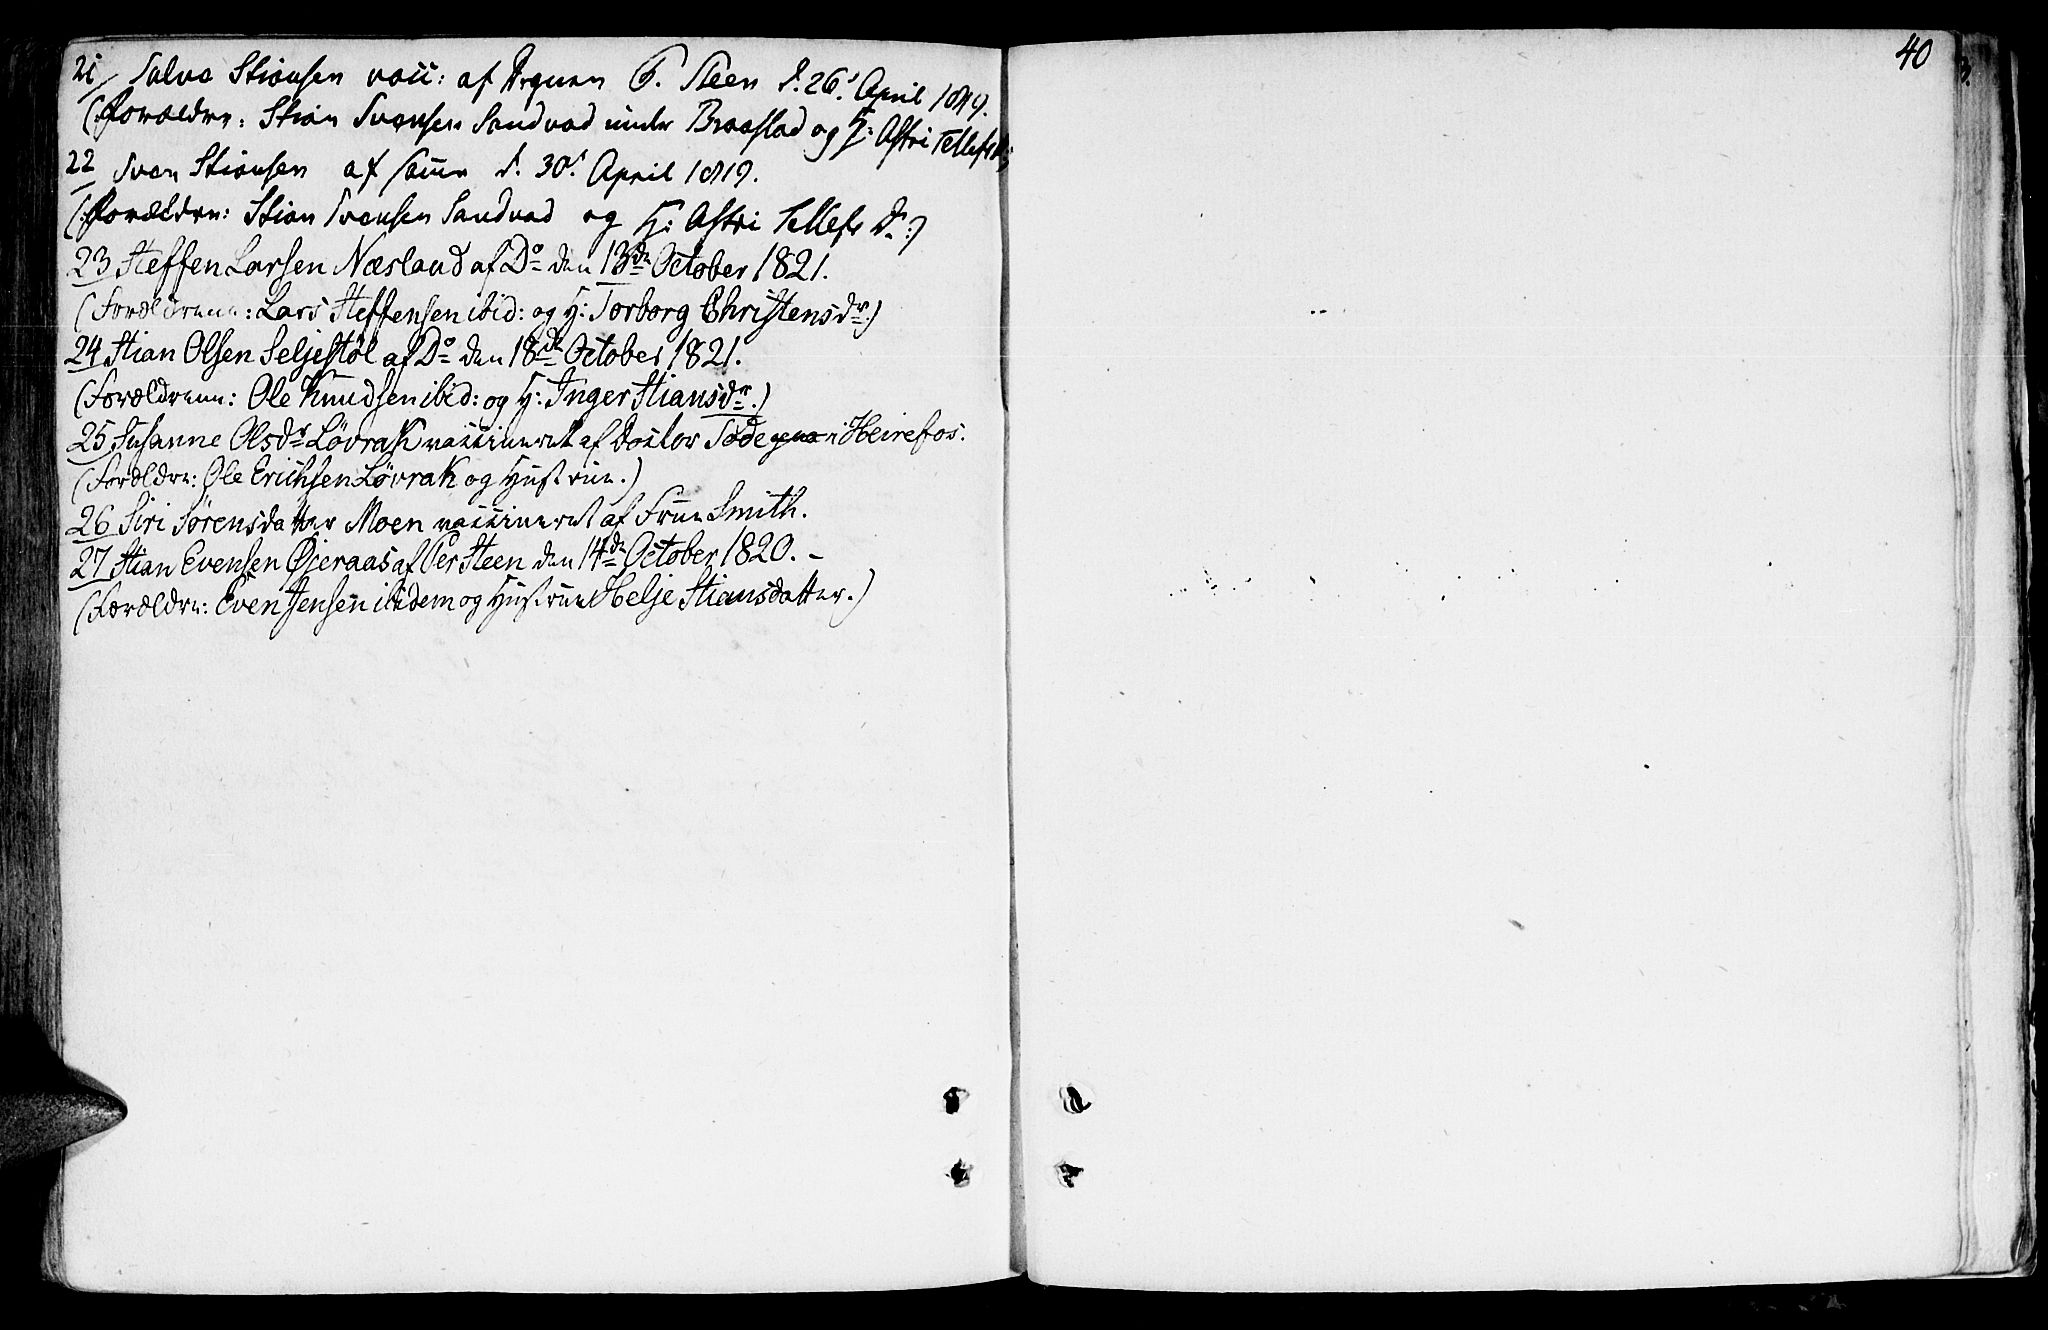 21/ Salve Stiansen vacc: af Degnen P. Steen d. 26. April 1819.
(Forældre: Stian Svensen Sandvad under Braastad og H: Astri Tellefs D:)
22 Sven Stiansen af samme d. 30. April 1819.
(Forældre: Stian Svensen Sandvad og H: Astri Tellefs D:)
23 Steffen Larsen Næsland af Do den 13de October 1821.
(Forældrene: Lars Steffensen ibid: og H: Torborg Christensdr.)
24 Stian Olsen Seljestøl af Do den 18de October 1821.
(Forældrene: Ole Knudsen ibid: og H: Inger Stiansdr.)
25 Susanne Olsdr Løvrak vaccineret af Doctor Tode i Heirefos.
(Forældre: Ole Erichsen Løvrak og Hustrue.)
26 Siri Sørensdatter Moen vaccineret af Frue Smith.
27 Stian Evensen Øjeraas af Per Steen den 14de October 1820. –
(Forældre: Even Jensen ibidem og Hustrue Helje Stiansdatter.)
40